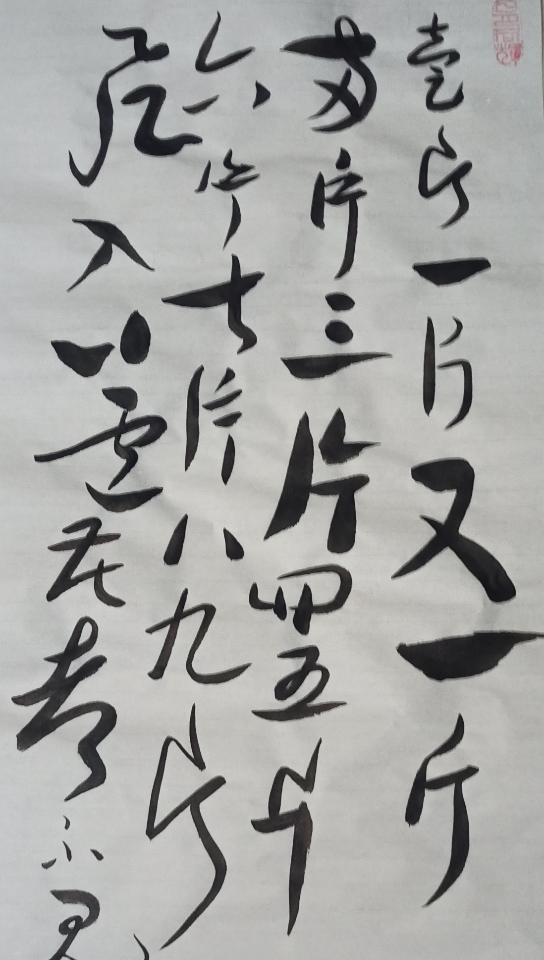 壹片一片又一片
两片三片四五片
六片七片八九片
飛入蘆花都不见